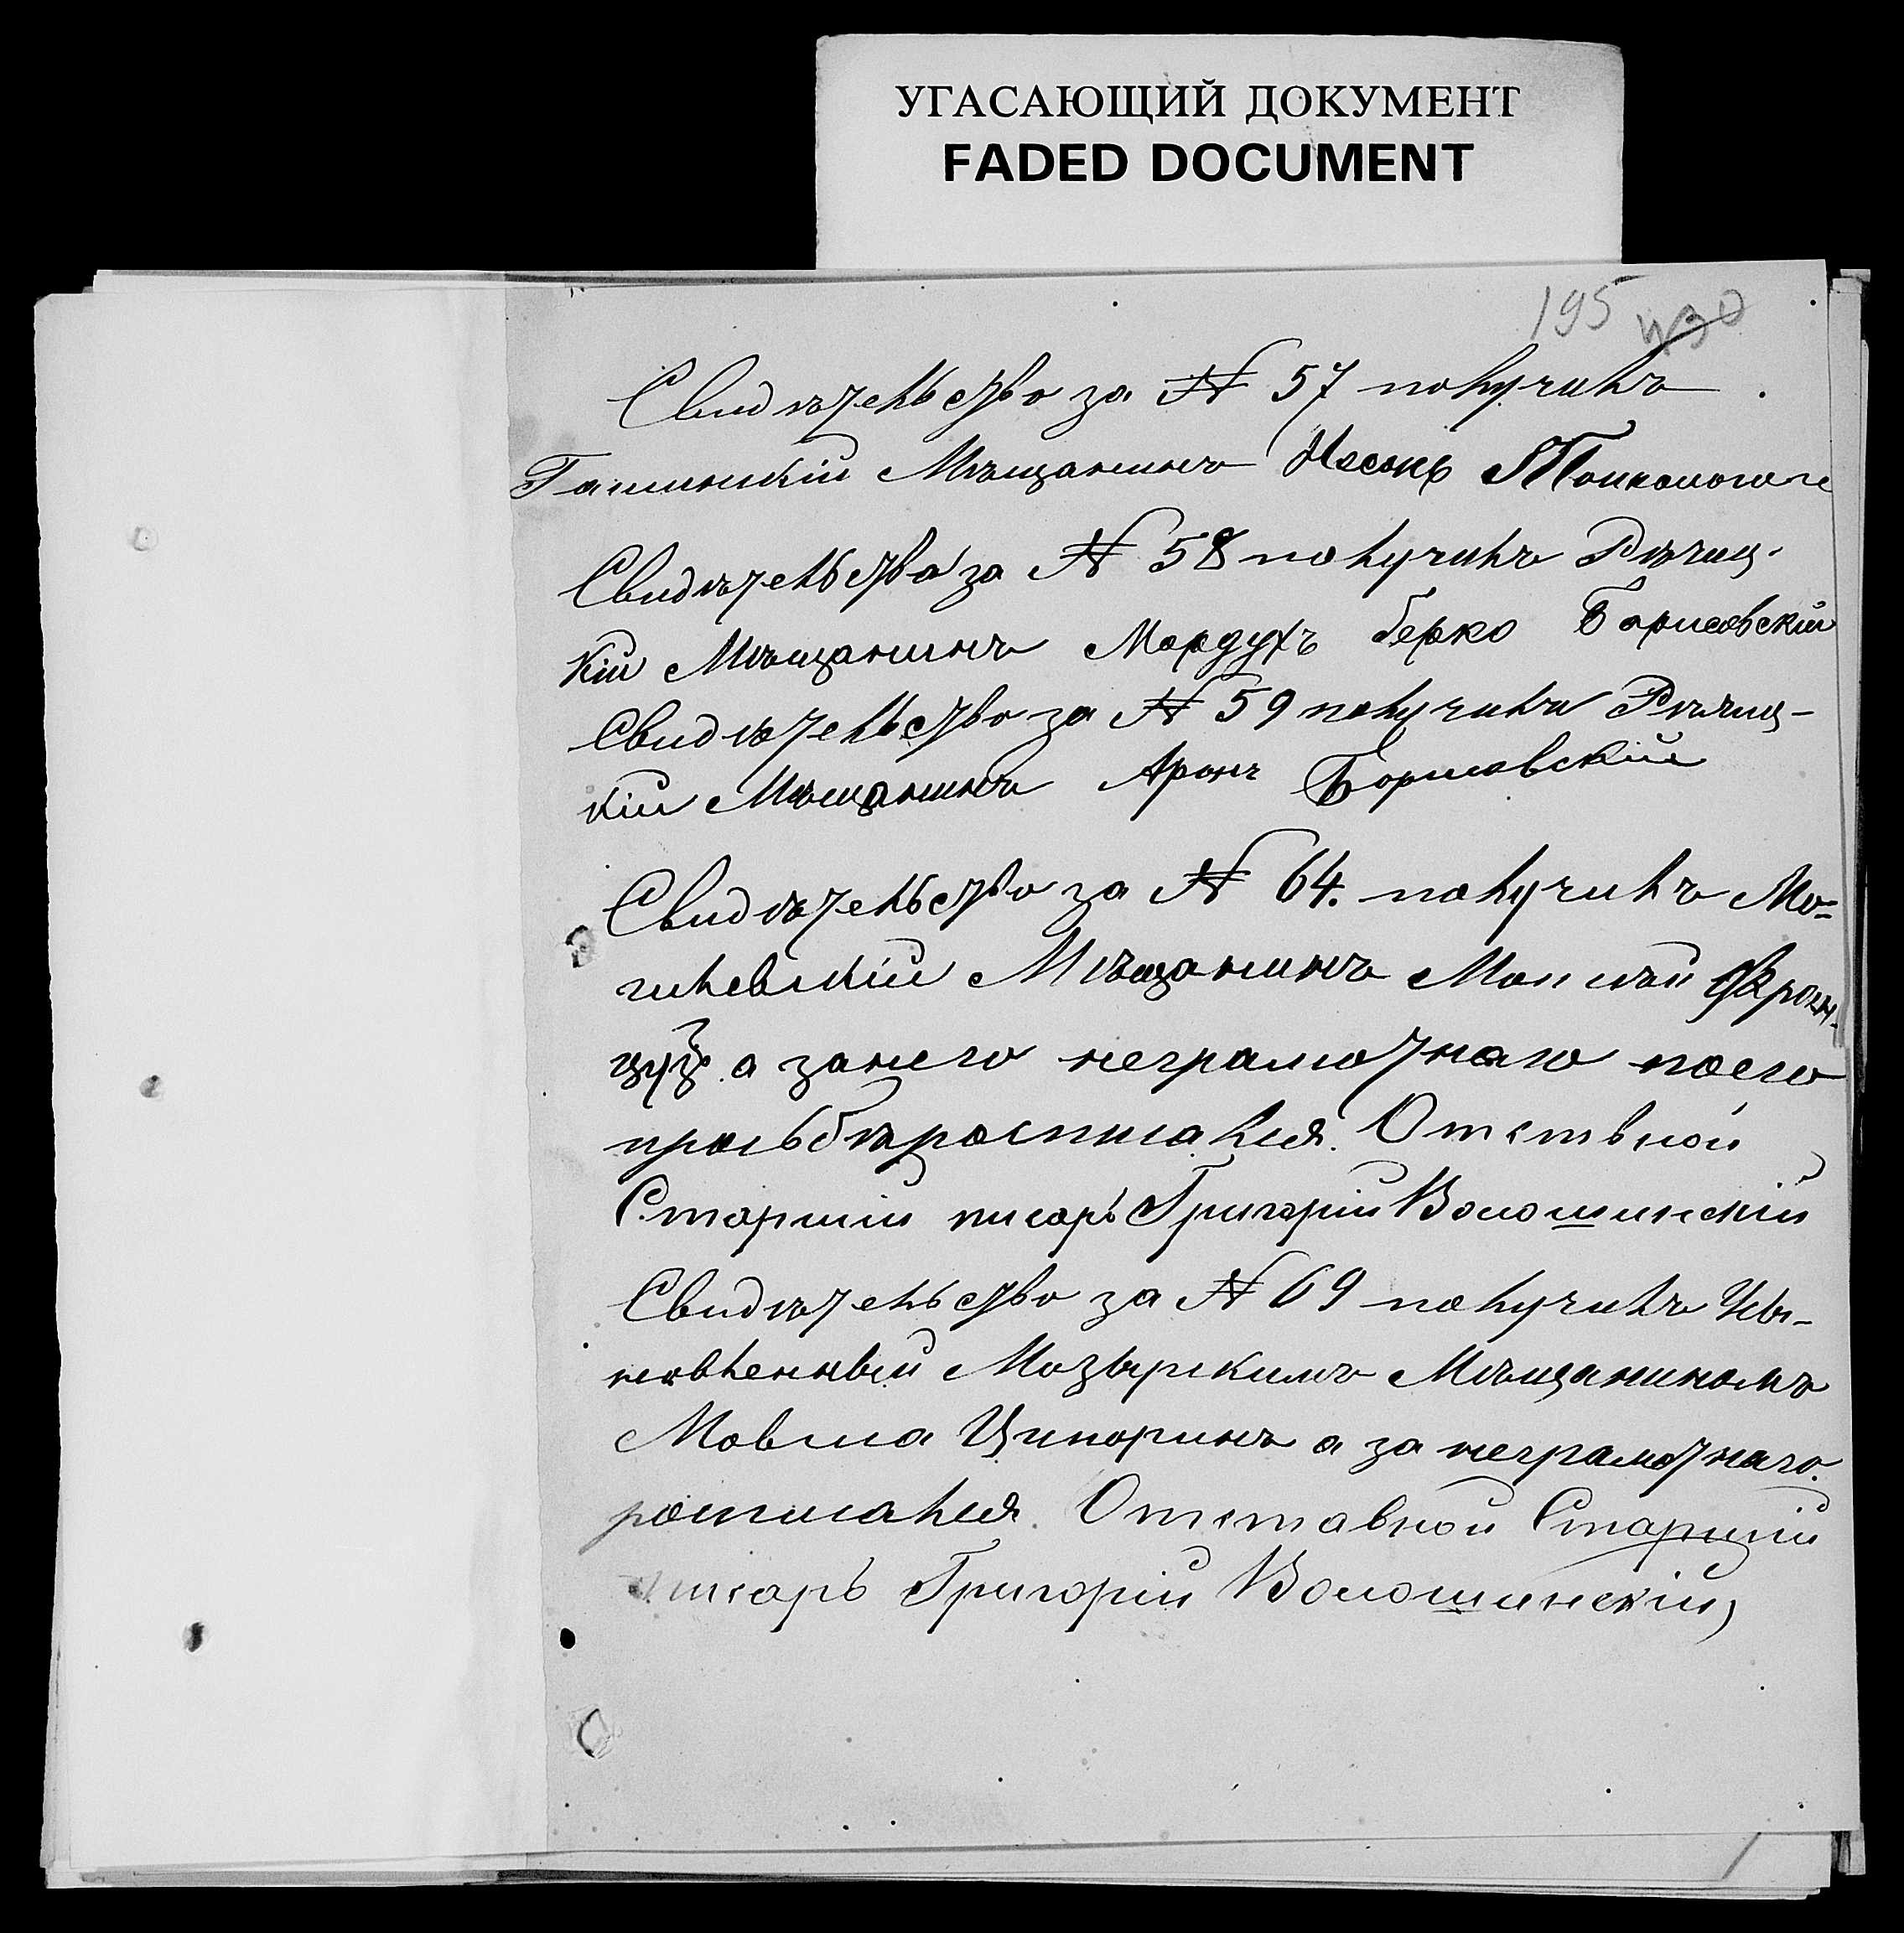 УГАСАЮЩИЙ ДОКУМЕНТ
FADED DOCUMENT
195 430
Свидѣтельство за № 57 получилъ
Мѣщанинъ
Свидѣтельство за № 58 получилъ Рѣчиц-
кій Мѣщанинъ Мордухъ Берко Борисовскій
Свидѣтельство за № 59 получилъ Рѣчиц-
кій Мѣщанинъ Аронъ Борисовскій
Свидѣтельство за № 64. получилъ Мо-
гилевскій Мѣщанинъ Францу
а занего неграмотнаго поего
прозьбѣ росписался. Отствной
Старшій писарь Григорій Волошинскій
Свидѣтельство за № 69 получилъ Усы-
новленный Мозырскимъ Мѣщаниномъ
Мовша Ципоринъ а за неграмотнаго
росписался. Отставной Старшій
писарь Григорій Волошинскій